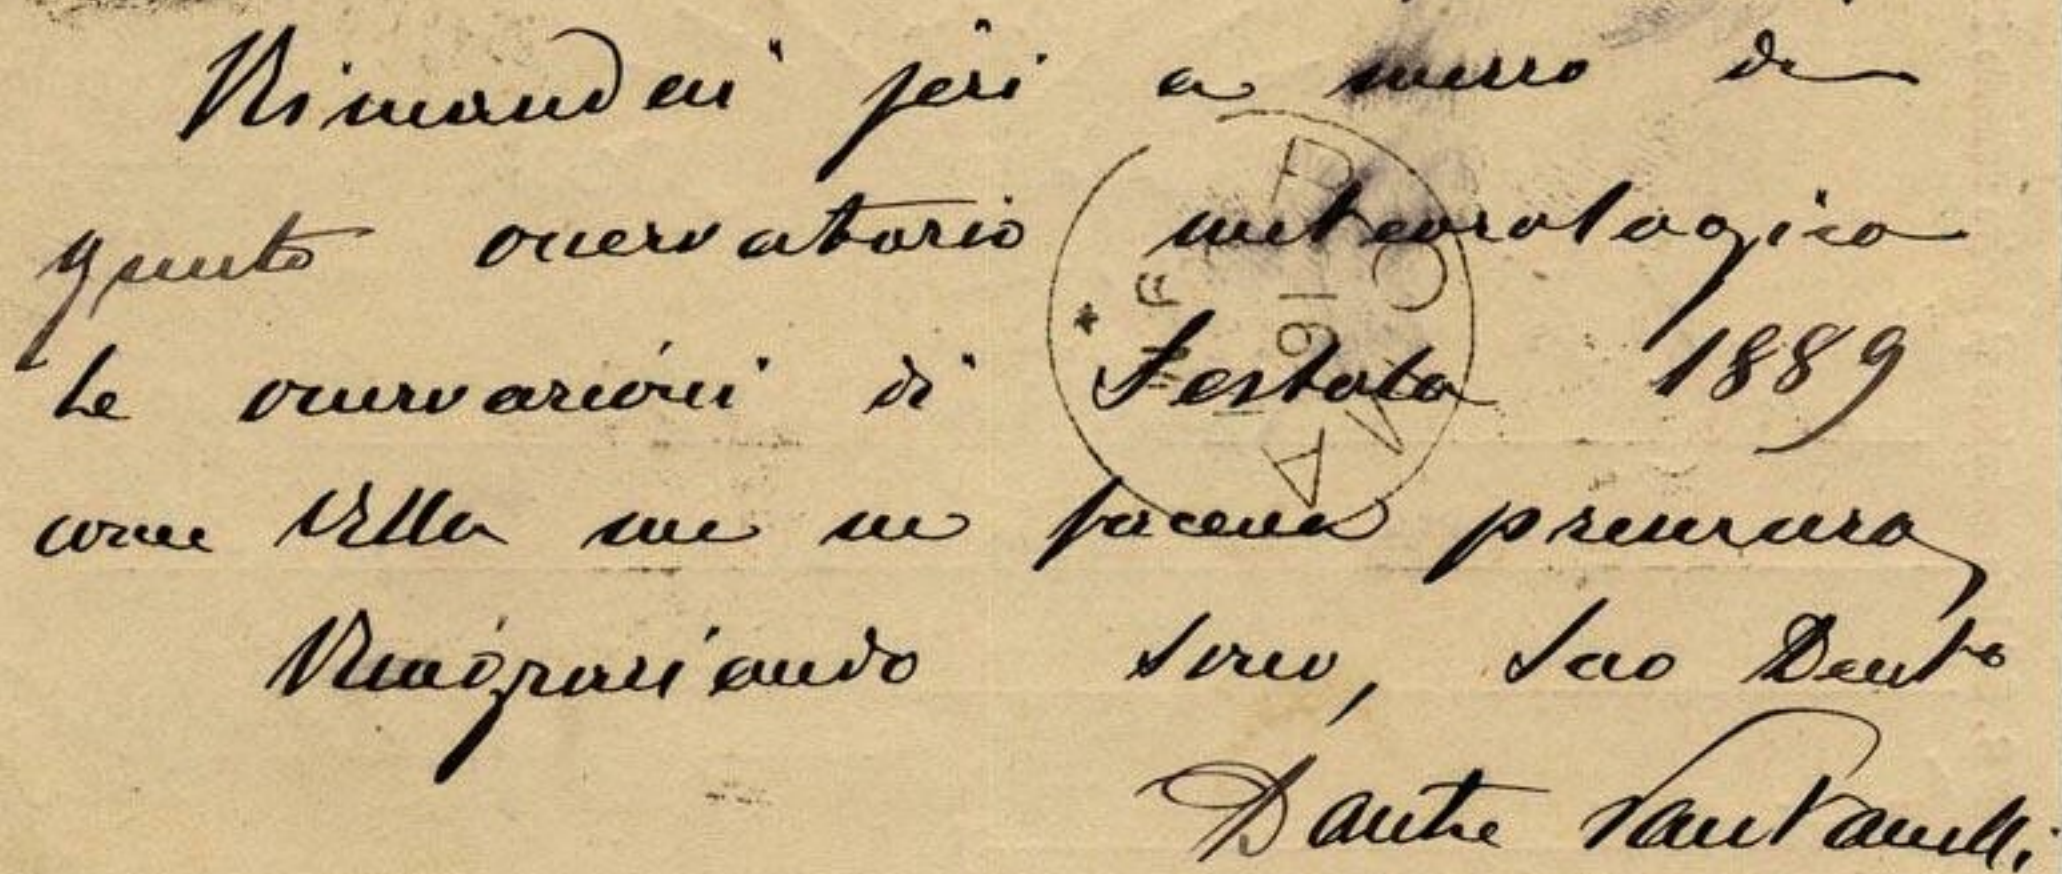 Rimandai jeri a mezzo di
questo osservatorio meteorologico
le osservazioni di Testata 1889
come Ella me ne faceva premura
Ringraziando sono, Suo Devto
Dante Santanelli
ROMA
16